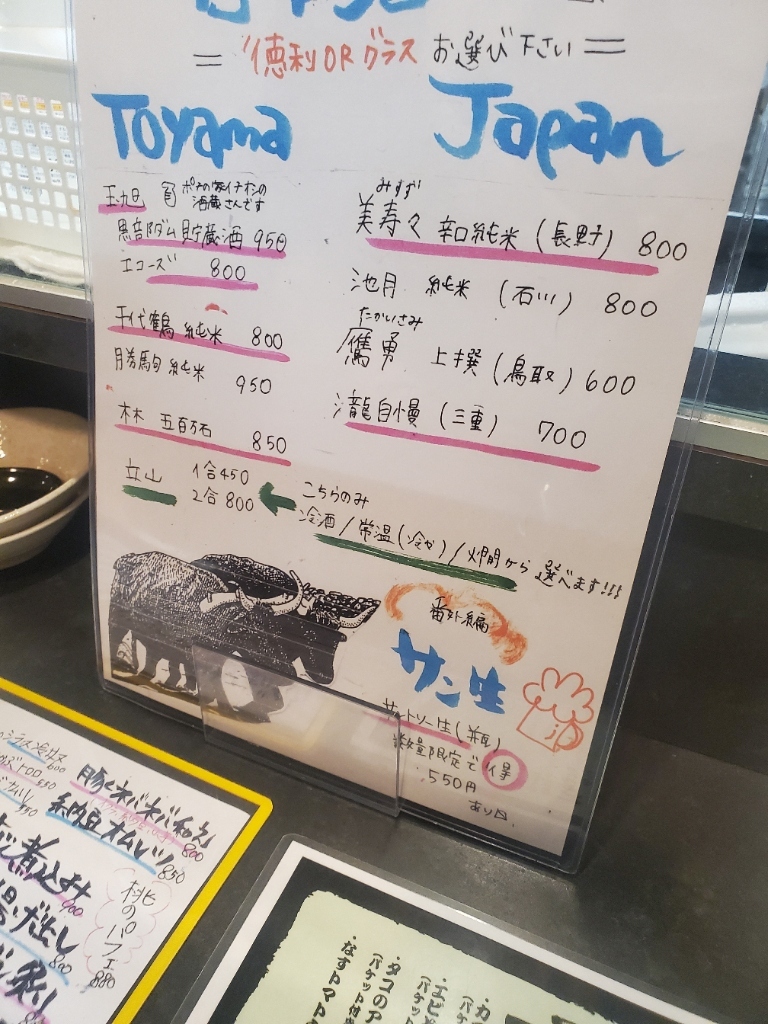 = 徳利ORグラス お選び下さい =
Toyama
玉旭
酒蔵さんです
黒部ダム貯蔵酒 950
エコーズ 800
千代鶴 純米 800
勝駒 純米 950
林 五百万石 850
立山 1合450
2合 800
Japan
みすず
美寿々 辛口純米 (長野) 800
池月 純米 (石川) 800
たかいさみ
鷹勇 上撰 (鳥取) 600
瀧自慢 (三重) 700
こちらのみ
冷酒/常温(冷や)/火燗から 選べます!!!
番外編
サン生
サントリー生(瓶)
数量限定で 得
550円
あり〼
600
550
豚とネバネバ和え
800
納豆オムレツ
850
煮込み
900
揚げ出し
800
桃のパフェ
880
・タコのア
(バゲット付
・エビと
(バゲット
・カ
(バ
・なすトマト